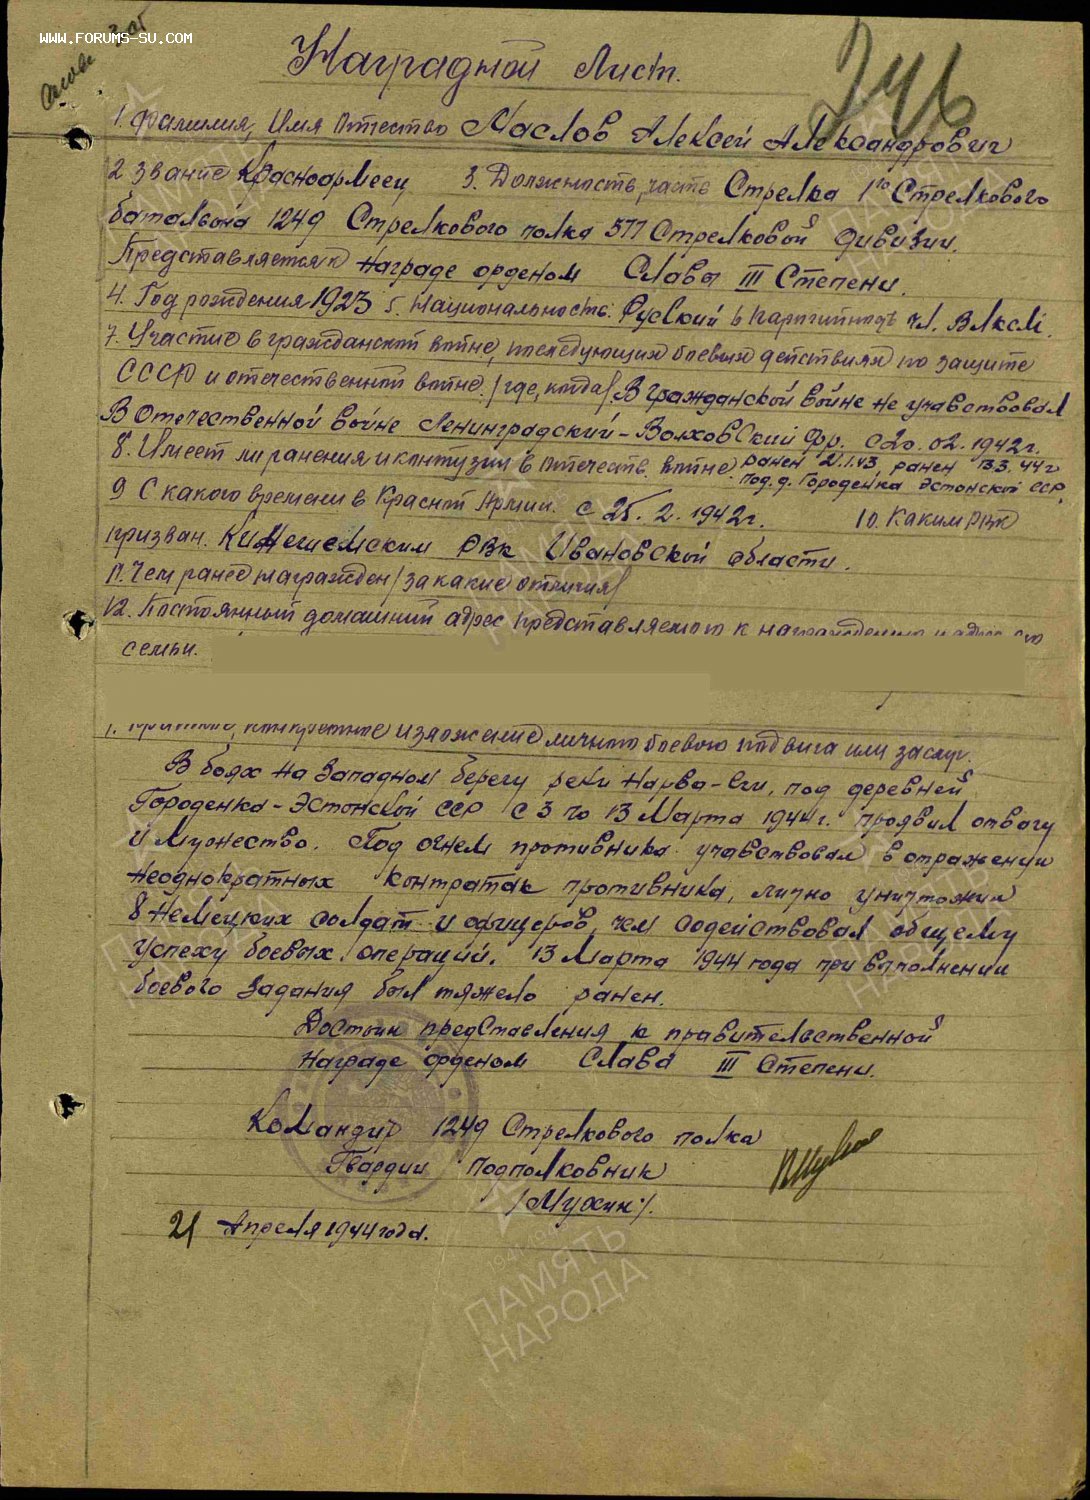 WWW.FORUMS-SU.COM
246
Наградной Лист.
1. Фамилия, Имя Отчество Маслов Алексей Александрович
2 Звание Красноармеец 3. Должность, часть Стрелка 1го Стрелкового
батальона 1249 Стрелкового полка 377 Стрелковой дивизии.
Представляется к Награде орденом Слава III Степени.
4. Год рождения 1923 5. Национальность: Руский 6 Партийность чл. ВЛКСМ.
7. Участие в гражданской войне, последующих боевых действиях по защите
СССР и отечественной войне. /где, когда/ В Гражданской войне не учавствовал
В Отечественной войне Ленинградский-Волховский фр. с 20.02.1942г.
8. Имеет ли ранения и контузии в отечеств. войне ранен 21.1.43, ранен 13.3.44г
под. д. Городенка Эстонской ССР.
9 С какого времени в Красной Армии. с 25.2.1942г. 10. Каким РВК
призван. Кинешемским РВК Ивановской области.
11. Чем ранее награжден /за какие отличия/
12. Постоянный домашний адрес представляемого к награждению и адрес его
семьи.
конкретное изложение личного боевого подвига или заслуг.
В боях на западном берегу реки Нарва-Еги, под деревней
Городенка-Эстонской ССР с 3 по 13 Марта 1944г. проявил отвагу
и мужество. Под огнем противника учавствовал в отражении
неоднократных контратак противника, лично уничтожил
8 немецких солдат и офицеров, чем содействовал общему
успеху боевых операций. 13 Марта 1944 года при выполнении
боевого задания был тяжело ранен.
Достоин представления к правительственной
Награде орденом Слава III Степени.
Командир 1249 Стрелкового полка
Гвардии Подполковник
/Мухин/.
21 Апреля 1944 года.
1941-1945
ПАМЯТЬ
НАРОДА